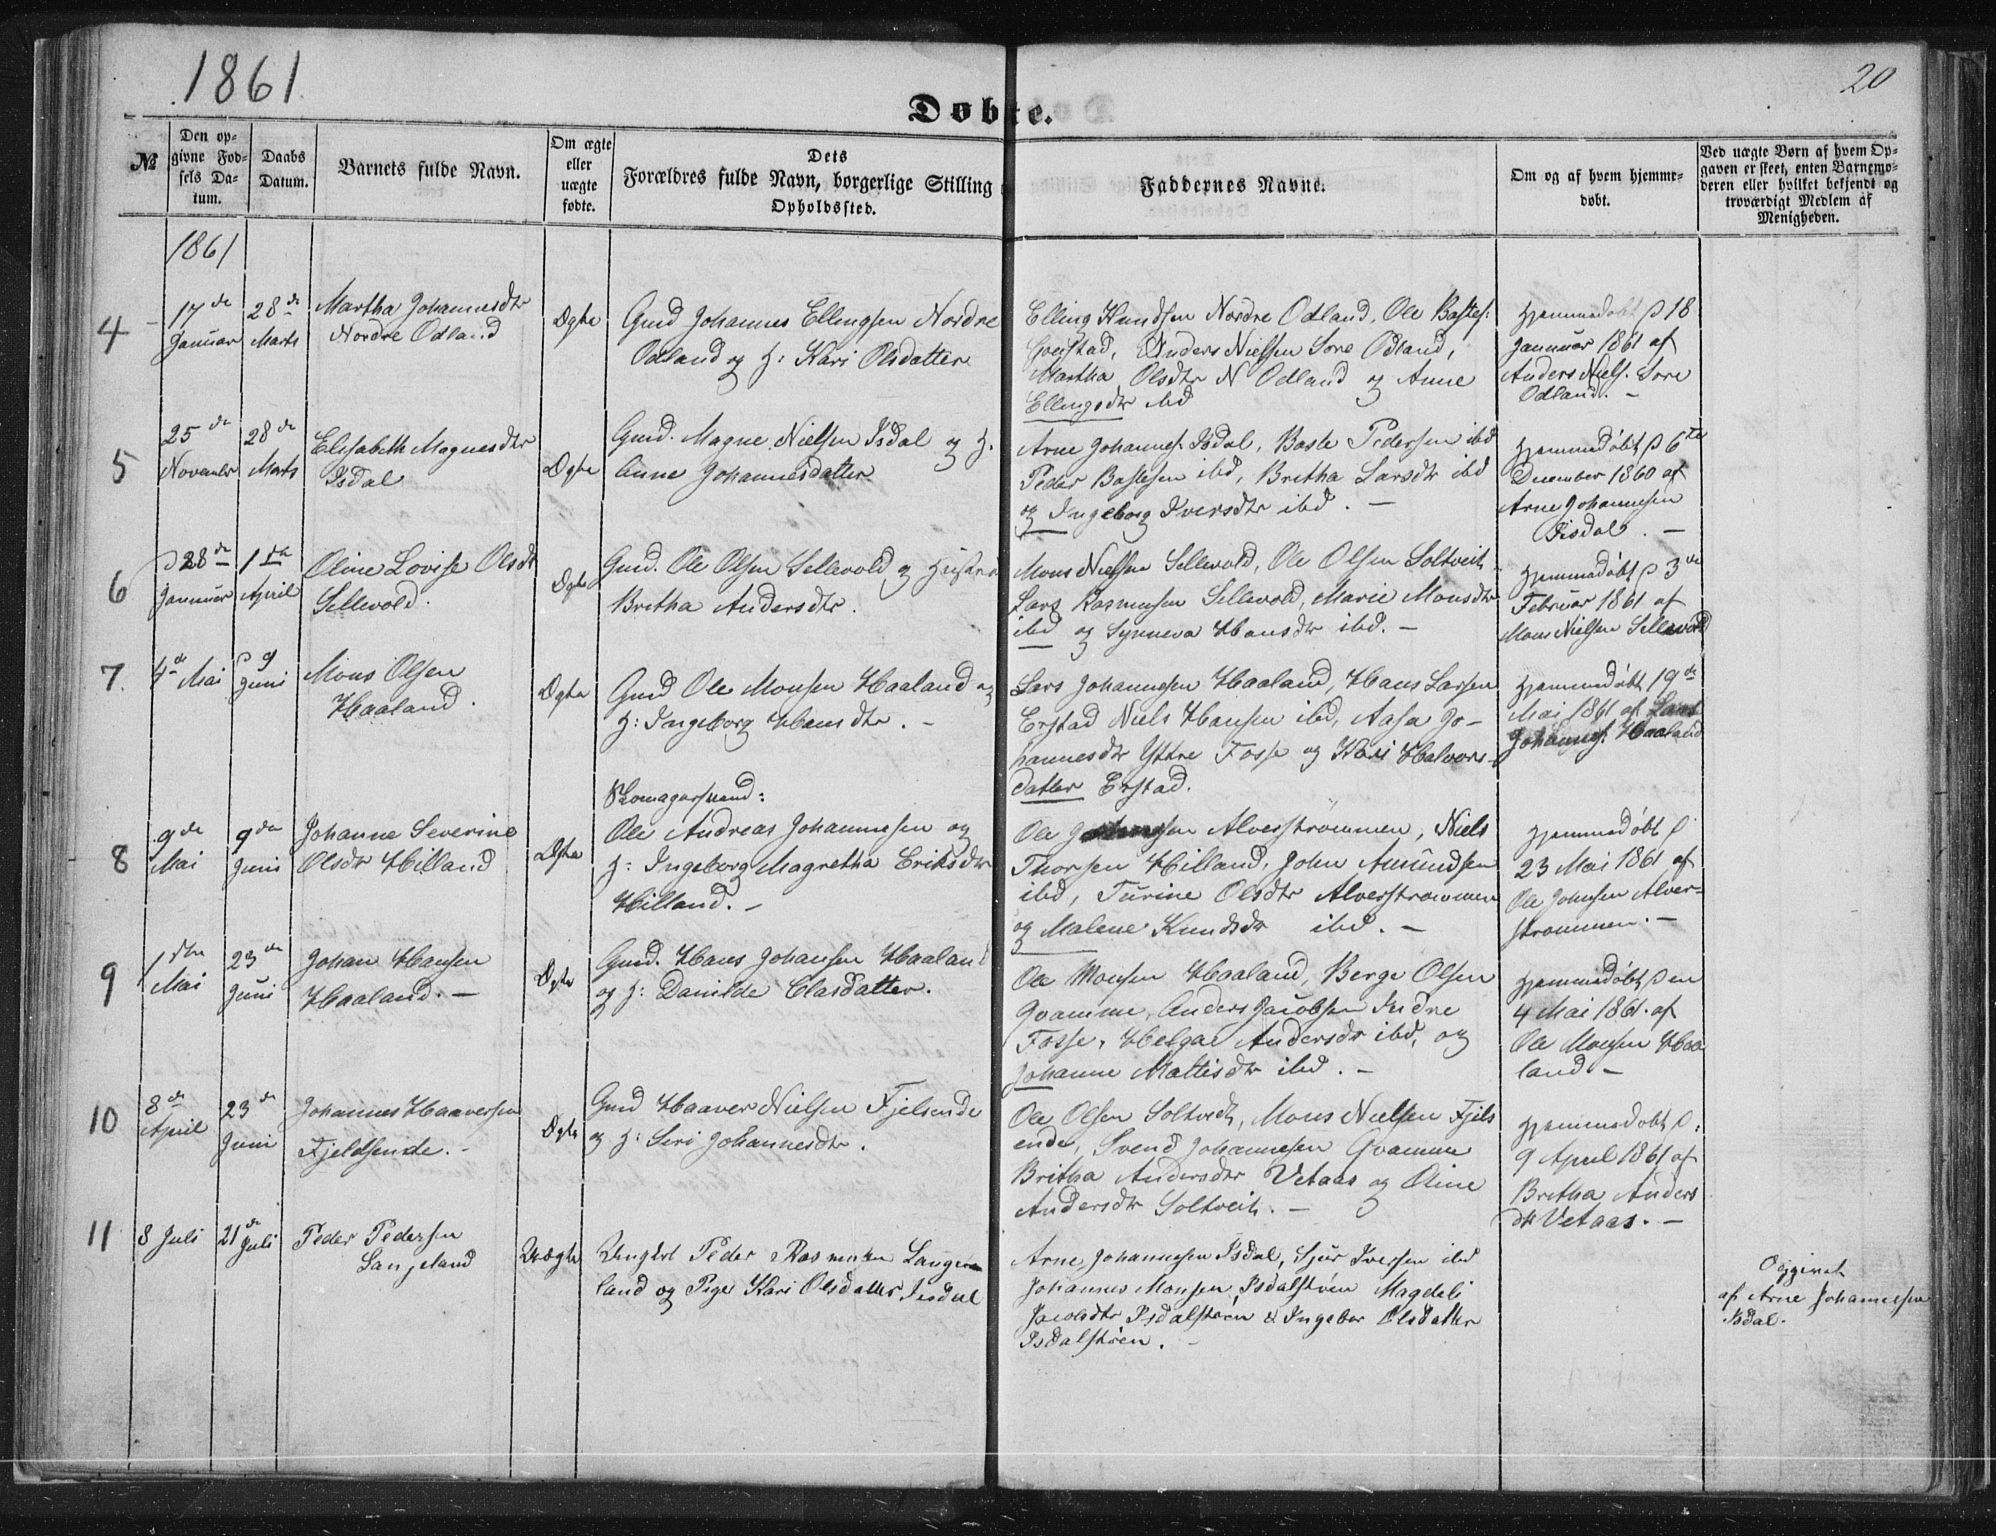 1861
20
Døbte.
№
Den op-
givne Fød-
sels Da-
tum.
Daabs
Datum.
Barnets fulde Navn.
Om ægte
eller
uægte
fødte.
Dets
Forældres fulde Navn, borgerlige Stilling
Opholdssted.
Faddernes Navne.
Om og af hvem hjemme-
døbt.
Ved uægte Børn af hvem Op-
gaven er skeet, enten Barnemo-
deren eller hvilket bekjendt og
troværdigt Medlem af
Menigheden.
1861
4
17de
Januar
28de
Marts
Martha Johannesdtr
Nordre Odland
Ægte
Gmd Johannes Ellingsen Nordre
Odland og H: Kari Olsdatter
Elling Knudsen Nordre Odland, Ole Bastes:
Anders Nielsen Søre Odland,
Martha Olsdtr N Odland og Anne
Ellingsdtr ibd
Hjemmedøbt D 18
Januar 1861 af
Anders Niels. Søre
Odland. –
5
25de
November
28de
Marts
Elisabeth Magnesdtr
Isdal
Ægte
Gmd. Magne Nielsen Isdal og H.
Anne Johannesdatter
Arne Johannes. Isdal, Baste Pedersen ibd
Peder Bastesen ibd, Britha Larsdtr ibd
og Ingeborg Iversdtr ibd. –
Hjemmedøbt D 6te
December 1860 af
Arne Johannesen
Iisdal. –
6
D 28de
Januar
1ste
April
Oline Lovise Olsdt
Sellevold.
Ægte
Gmd. Ole Olsen Sellevold og Hustru
Britha Andersdtr.
Mons Nielsen Sellevold, Ole Olsen Soltveit
Lars Rasmusen Sellevold, Marie Monsdtr
ibd og Synneva Hansdtr ibd. –
Hjemmedøbt D 3de
Februar 1861 af
Mons Nielsen Sellevold
7.
4de Mai
D 9
Juni
Mons Olsen
Haaland.
Ægte
Gmd Ole Monsen Haaland og
H: Ingeborg Hansdtr. –
Lars Johannesen Haaland, Hans Larsen
Erstad Niels Hansen ibd, Aasa Jo-
hannesdtr Yttre Fosse og Kari Halvors-
datter Erstad.
Hjemmedøbt 19de
Mai 1861 af Lars
Johannes. Haaland
8
9de
Mai
9de
Juni
Johanne Severine
Olsdtr Hilland
Ægte
Ole Andreas Johannesen og
H: Ingeborg Magretha Eriksdtr
Hilland. –
Ole Alverstrømmen, Niels
Thorsen Hilland, John Amundsen
ibd, Turine Olsdtr Alverstrømmen
og Malene Knudsdtr ibd. –
Hjemmedøbt D
23 Mai 1861 af
Ole Johnsen Alver-
strømmen. –
9
1ste
Mai
23de
Juni
Johan Hansen
Haaland. –
Ægte
Gmd. Hans Johansen Haaland
og H: Danilde Clasdatter.
Ole Monsen Haaland, Berge Olsen
Qvamme, Anders Jacobsen Indre
Fosse, Helga Andersdr ibd, og
Johanne Mattisdtr ibd. –
Hjemmedøbt Den
4 Mai 1861. af
Ole Monsen Haa
land –
10
8de
April
23de
Juni
Johannes Haaversen
Fjeldsende. –
Ægte
Gmd Haaver Nielsen Fjelsende
og H: Siri Johannesdtr.
Ole Olsen Soltvedt, Mons Nielsen Fjels
ende, Svend Johannesen Qvamme
Britha Andersdtr Vetaas og Oline
Andersdtr Soltveit. –
Hjemmedøbt D:
9 April 1861 af
Britha Anders
dtr Vetaas. –
11
8 Juli
21de Juli
Peder Pedersen
Langeland
Uægte
Ungkl Peder Rasmusen Lange
land og Pige Kari Olsdatter Iisdal
Arne Johannesen Isdal, Sjur Iversen ibd
Johannes Monsen Isdalstøen Magdeli
Jacobsdtr Isdalstøen & Ingebor Olsdatter
Isdalstøen. –
Opgivet
af Arne Johannesen
Isdal.